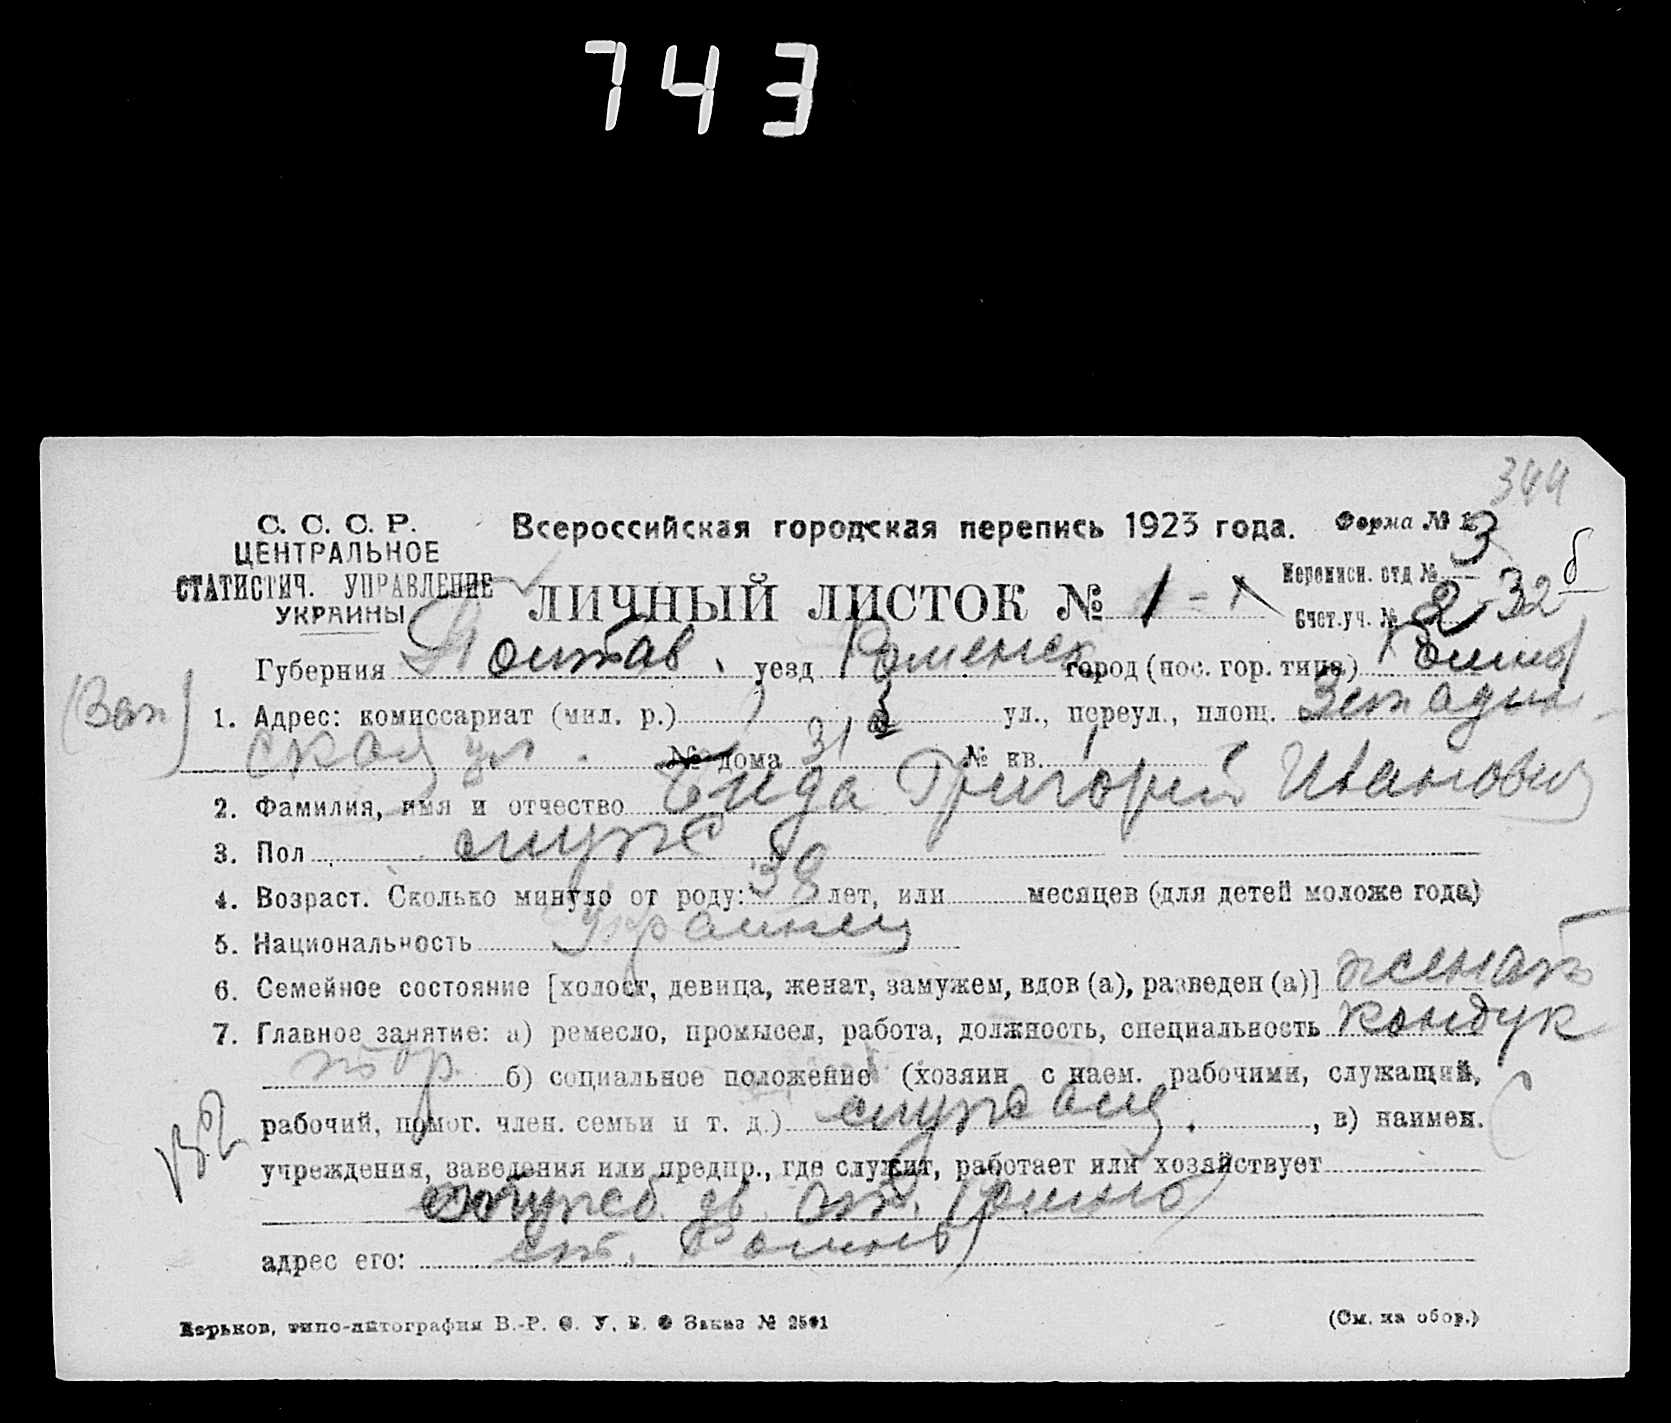 743
344
С. С. С. Р.
ЦЕНТРАЛЬНОЕ
СТАТИСТИЧ. УПРАВЛЕНИЕ
УКРАИНЫ
Всероссийская городская перепись 1923 года.
Форма № 1
ЛИЧНЫЙ ЛИСТОК № 1
Переписн. отд № 3
Счет.уч. № 2 32 б
Губерния Полтав уезд Роменск город (пос. гор. типа) Ромны
(Зап)
1. Адрес: комиссариат (мил. р.) ул., переул., площ.
ская ул. № дома 31 № кв. 1
2. Фамилия, имя и отчество Бида Григорий Иванович
3. Пол муж
4. Возраст. Сколько минуло от роду: 38 лет, или месяцев (для детей моложе года)
5. Национальность Украинец
6. Семейное состояние [холост, девица, женат, замужем, вдов (а), разведен (а)] женат
7. Главное занятие: а) ремесло, промысел, работа, должность, специальность кондук
тор. б) социальное положение (хозяин с наем. рабочими, служащий,
рабочий, помог. член. семьи и т. д.) служащ. , в) наимен.
учреждения, заведения или предпр., где служит, работает или хозяйствует
служб. дв. ст. Ромны
адрес его: ст. Ромны
Харьков, типо-литография В.-Р. Ф. У. В. О Заказ № 2501
(См. на обор.)